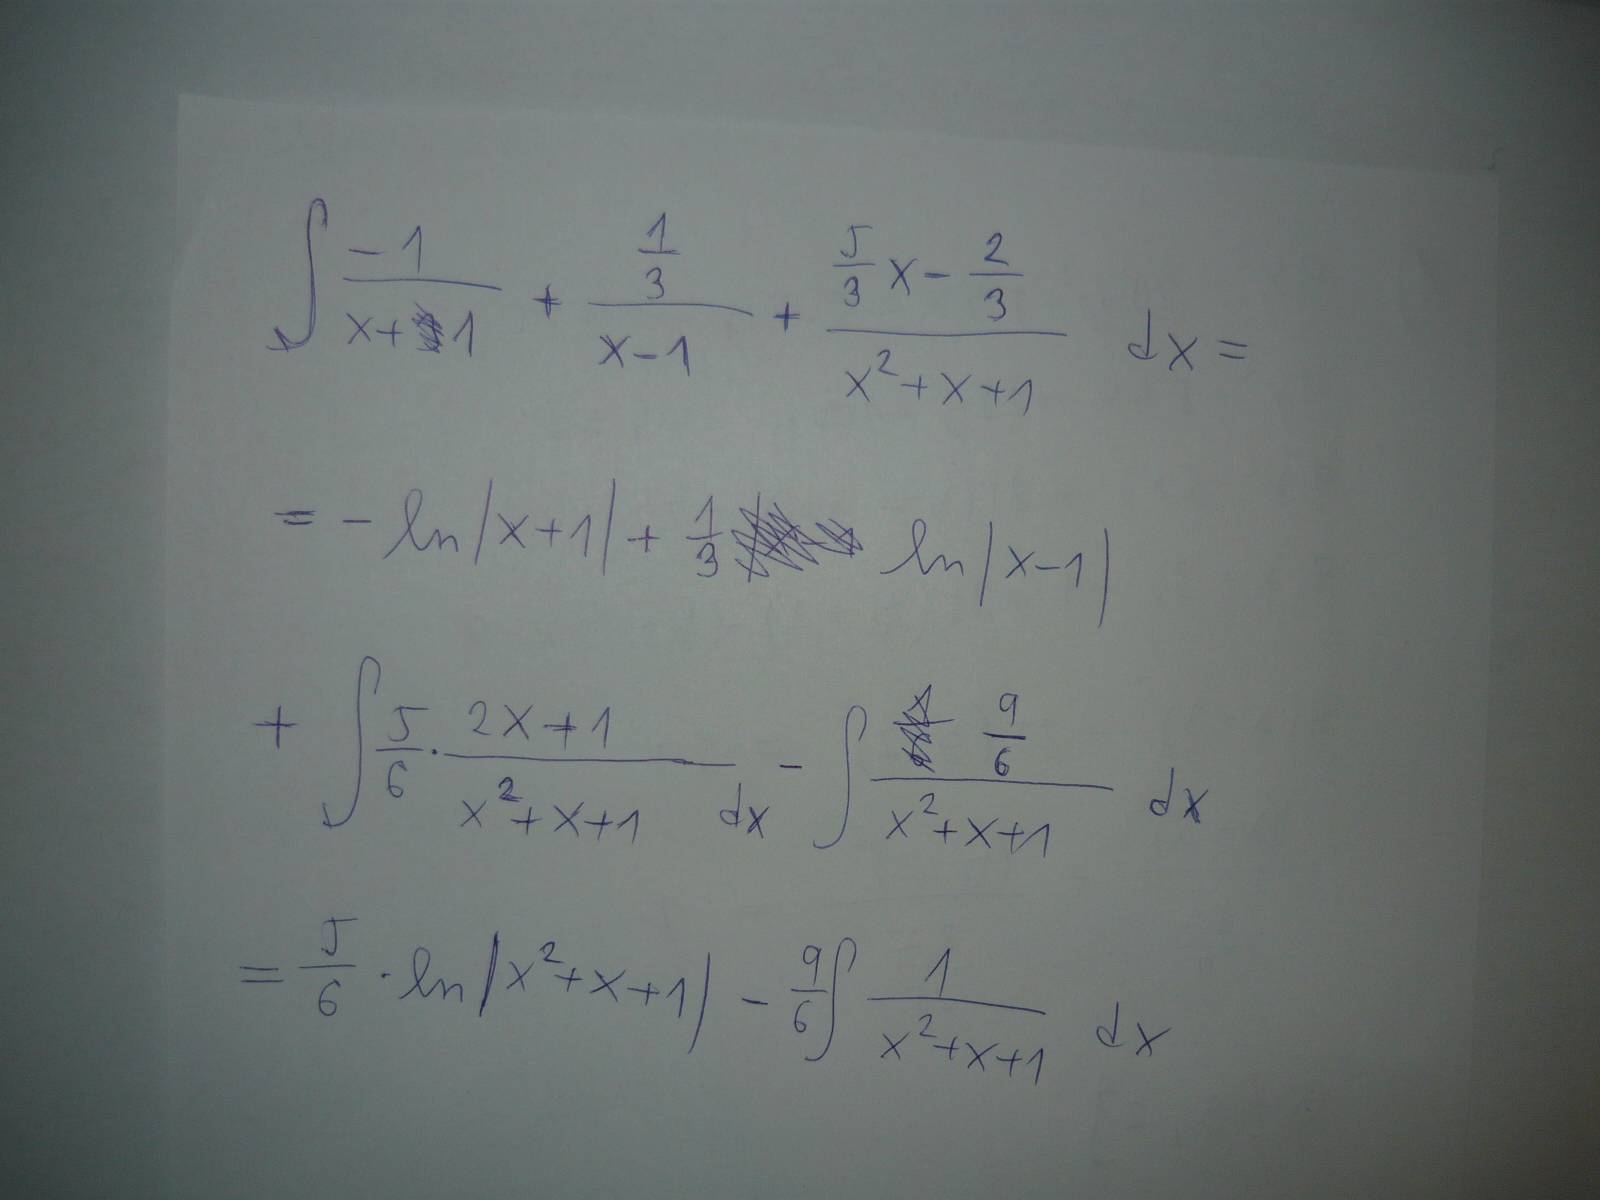 ∫ -1/(x+1) + (1/3)/(x-1) + (5/3 x - 2/3)/(x²+x+1) dx =
= - ln|x+1| + 1/3 ln|x-1|
+ ∫ 5/6 · (2x+1)/(x²+x+1) dx - ∫ (9/6)/(x²+x+1) dx
= 5/6 · ln|x²+x+1| - 9/6 ∫ 1/(x²+x+1) dx